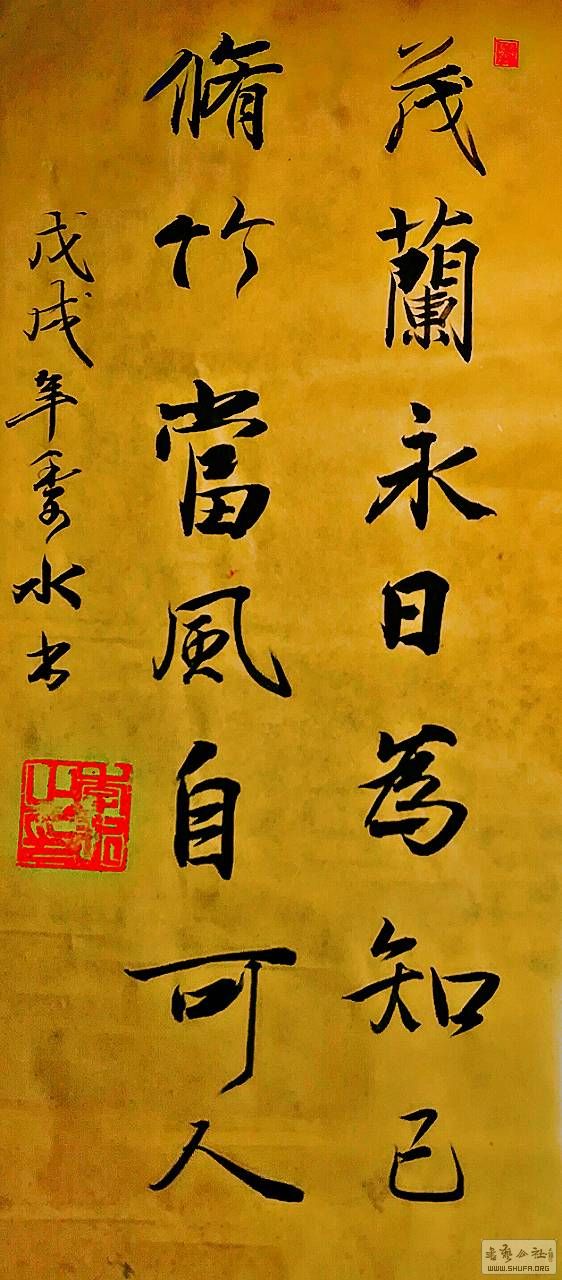 茂蘭永日為知己
脩竹當風自可人
戊戌年秀水书
WWW.SHUFA.ORG